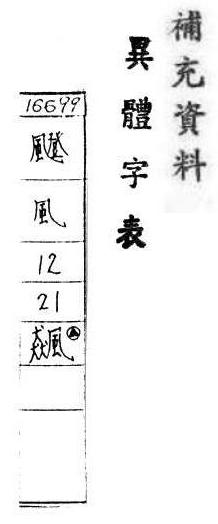 補充資料
異體字表
16699
風
12
21